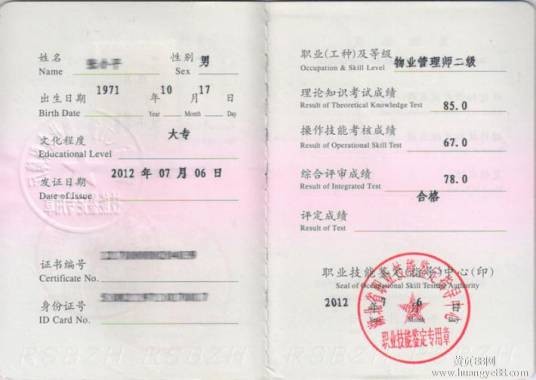 姓名 性别 男
Name Sex
1971 10 17
出生日期 年 月 日
Birth Date Year Month Day
文化程度 大专
Educational Level
发证日期 2012 年 07 月 06 日
Date of Issue
证书编号
Certificate No.
身份证号
ID Card No.
职业(工种)及等级 物业管理师二级
Occupation & Skill Level
理论知识考试成绩 85.0
Result of Theoretical Knowledge Test
操作技能考核成绩 67.0
Result of Operational Skill Test
综合评审成绩 78.0
Result of Integrated Test
合格
评定成绩
Result of Test
职业技能鉴定(指导)中心(印)
Seal of Occupational Skill Testing Authority
2012 年 7 月 6 日
职业技能鉴定专用章
黄页88网
www.huangye88.com